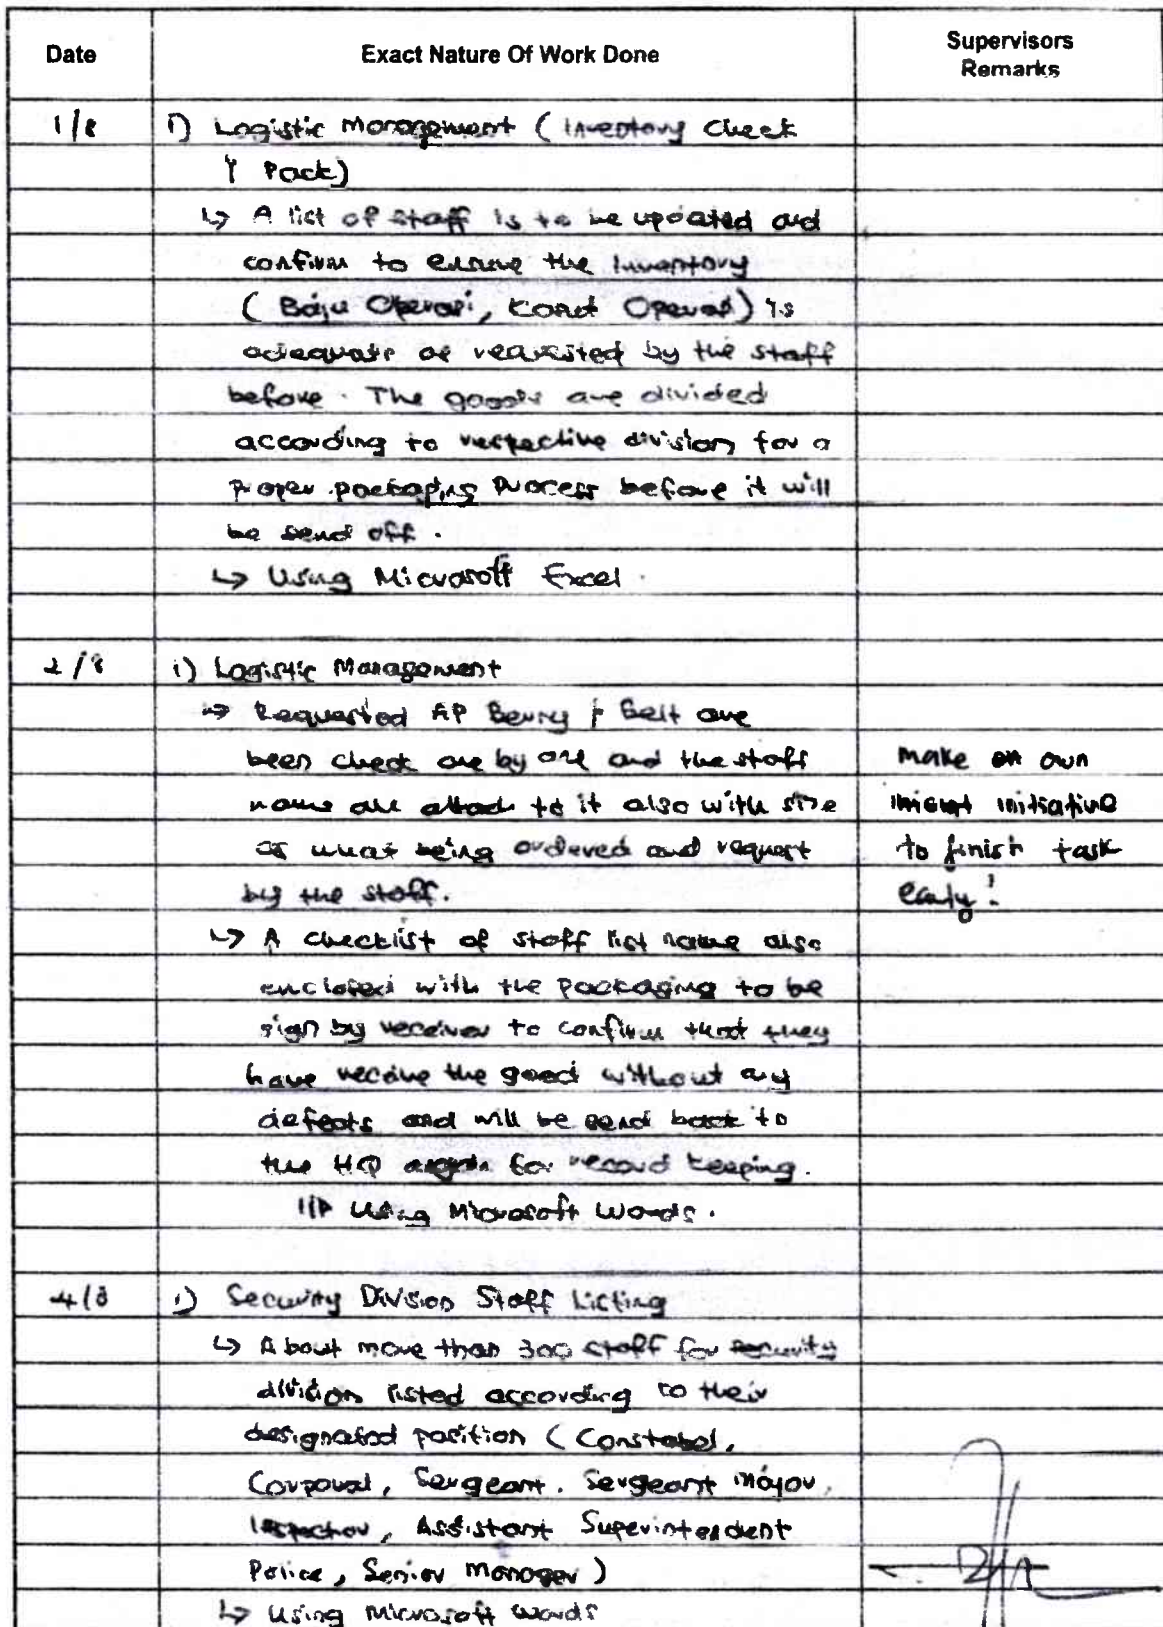 Date
Exact Nature Of Work Done
Supervisors
Remarks
1/8
i) Logistic Management (Inventory Check
& Pack)
↳ A list of staff is to be updated and
confirm to ensure the Inventory
(Baju Operasi, Operasi) is
adequate as requested by the staff
before. The goods are divided
according to respective division for a
proper packaging process before it will
be send off.
↳ Using Microsoft Excel.
2/8
i) Logistic Management
↳ Requested AP Berry & Belt are
been check one by one and the staff
name are attach to it also with size
as what being ordered and request
by the staff.
make an own
initiative
to finish task
early!
↳ A checklist of staff list name also
enclosed with the packaging to be
sign by receiver to confirm that they
have receive the good without any
defects and will be send back to
the HQ again for record keeping.
Using Microsoft Words.
4/8
i) Security Division Staff Listing
↳ About more than 300 staff for security
division listed according to their
designated position (Constabel,
Corporal, Sergeant, Sergeant Mayor,
Inspector, Assistant Superintendent
Police, Senior Manager)
↳ Using Microsoft Words